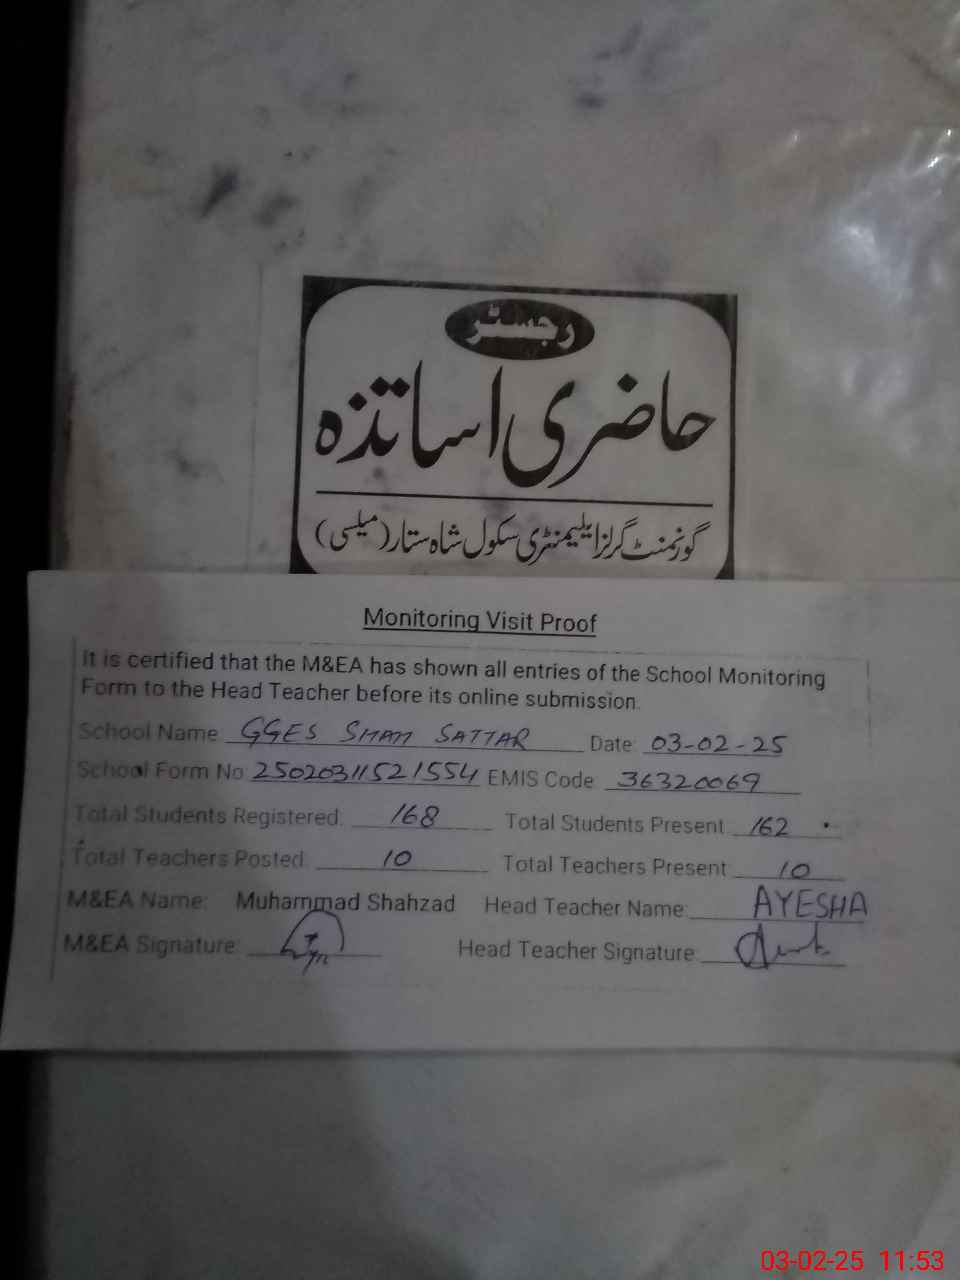 رجسٹر
حاضری اساتذہ
گورنمنٹ گرلز ایلیمنٹری سکول شاہ ستار (میلسی)
Monitoring Visit Proof
It is certified that the M&EA has shown all entries of the School Monitoring
Form to the Head Teacher before its online submission.
School Name GGES SHAH SATTAR Date: 03-02-25
School Form No 25020311521554 EMIS Code 36320069
Total Students Registered: 168 Total Students Present 162
Total Teachers Posted 10 Total Teachers Present 10
M&EA Name: Muhammad Shahzad Head Teacher Name: AYESHA
M&EA Signature: Head Teacher Signature:
03-02-25 11:53